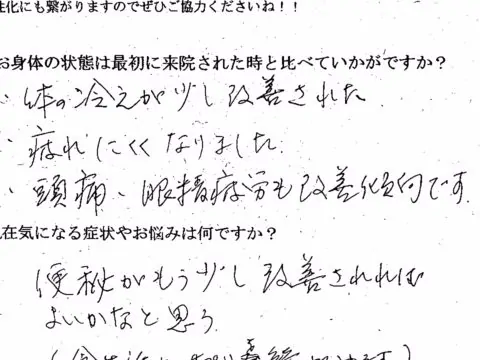 性化にも繋がりますのでぜひご協力くださいね！！
お身体の状態は最初に来院された時と比べていかがですか？
・体の冷えが少し改善された
・疲れにくくなりました
・頭痛、眼精疲労も改善傾向です
在気になる症状やお悩みは何ですか？
便秘がもう少し改善されれば
よいかなと思う